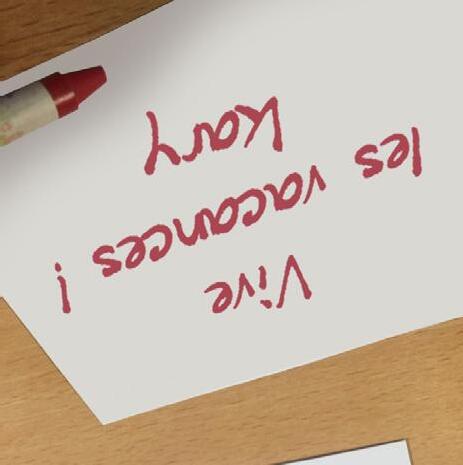 Vive
les vacances !
Kary